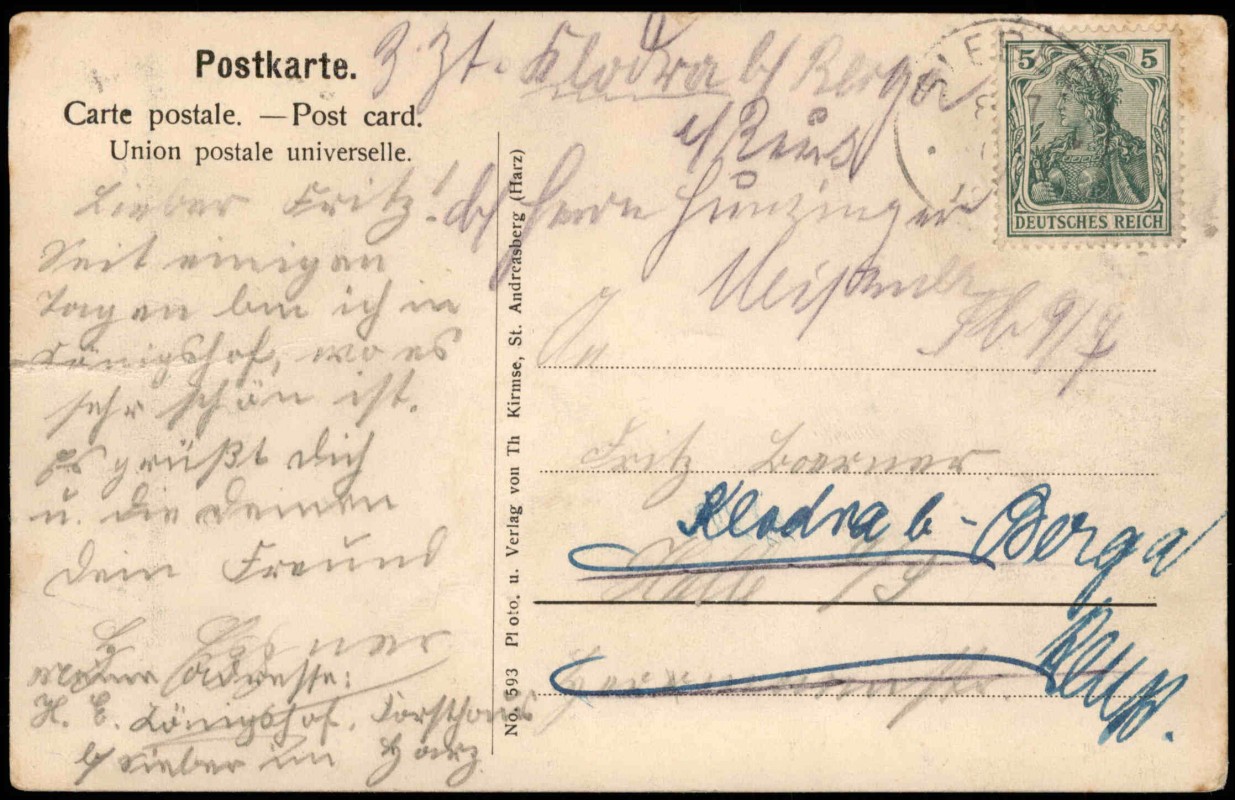 Postkarte.
Carte postale. — Post card.
Union postale universelle.
Z. Zt. Klodra b/ Berga
b/ Herrn Hunzinger
9/7
5 5
DEUTSCHES REICH
SIEB
Lieber Fritz!
Seit einigen
Tagen bin ich in
Königshof, wo es
sehr schön ist.
Es grüßt Dich
u. die Deinen
Dein Freund
H.
Meine Adresse:
H. E. Königshof, Forsthaus
b/ Sieber im Harz
No. 593 Photo. u. Verlag von Th Kirmse, St. Andreasberg (Harz)
An
Fritz Boerner
Klodra b. Berga
Halle a/S
Reuß.